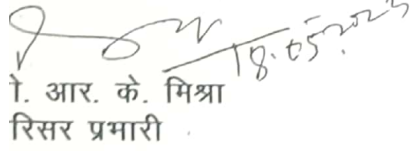 18.05.2023
ो. आर. के. मिश्रा
रिसर प्रभारी